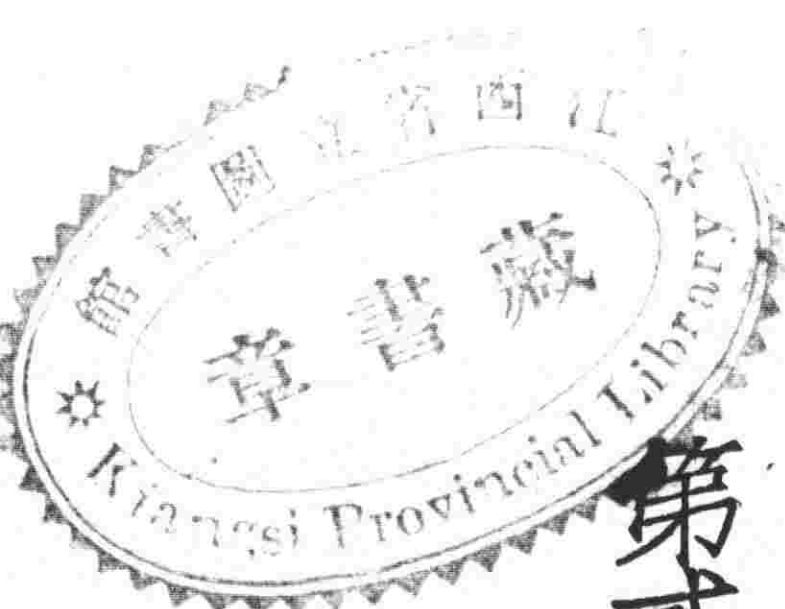 江西省立圖書館
藏書章
Kiangsi Provincial Library
第